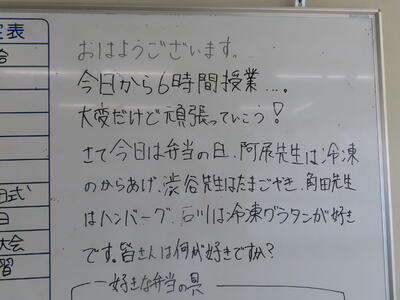 定表
会
おはようございます。
今日から6時間授業...。
大変だけど頑張っていこう!
さて今日は弁当の日、阿辰先生は冷凍
のからあげ、渋谷先生はたまごやき、角田先生
はハンバーグ、石川は冷凍グラタンが好き
です。皆さんは何が好きですか?
好きな弁当の具
式
日
大会
習